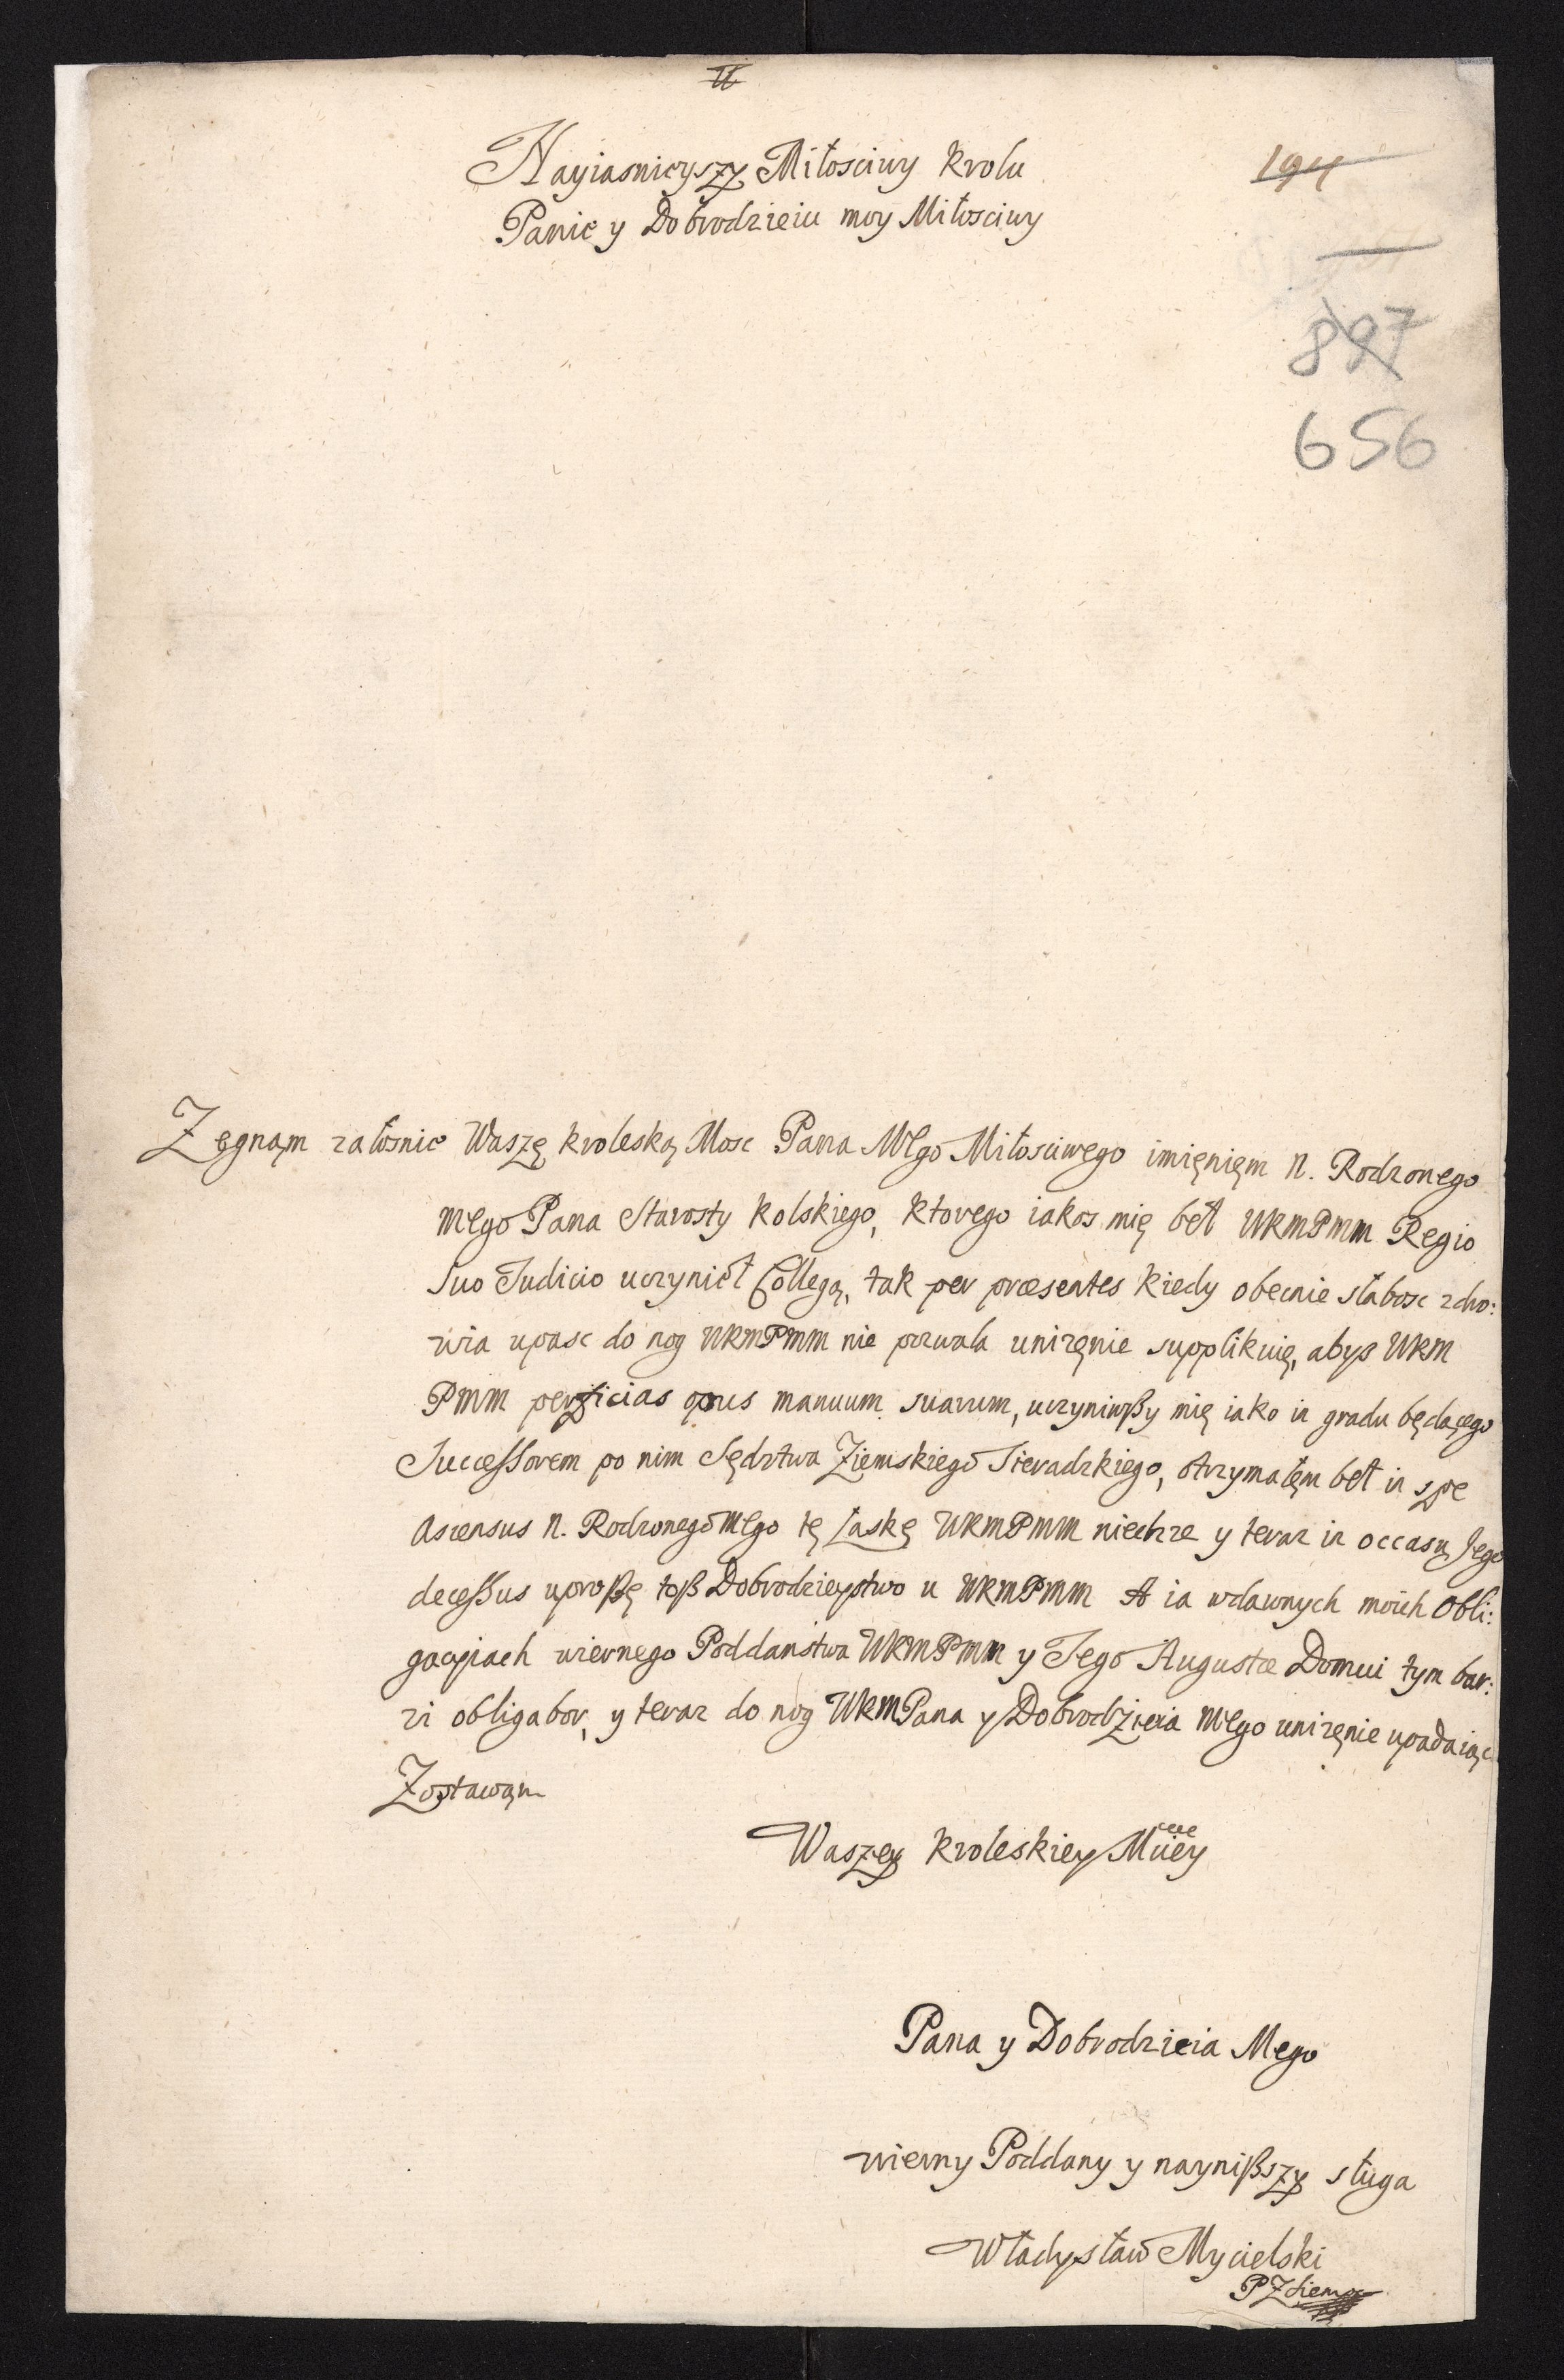 Nayiasnieyszy Miłosciwy Krolu
Panie y Dobrodzieiu moy Miłosciwy
194
897
656
Zegnąm załosnie Waszę Kroleską Mosc Pana Mego Miłosciwego imięnięm n. Rodzonego
Mego Pana Starosty Kolskiego, Ktorego iakos mię beł WKMPMM Regio
suo Judicio uczynieł Collegą, tak per præsentes kiedy obecnie słabosc zdro:
wia upasc do nog WKMPMM nie pozwala unizęnie supplikuię, abyś WKM
PMM perficias opus manuum suarum, uczyniwßy mię iako in gradu będącego
Successorem po nim Sędztwa Ziemskiego Sieradzkiego, otrzymałęm beł in spe
Ascensus n. Rodzonego Mego tę Łaskę WKMPMM niechze y teraz in occasu Jego
decessus uproßę toß Dobrodzieystwo u WKMPMM A ia wdawnych moich Obli:
gacyiach wiernego Poddaństwa WKMPMM y Jego Augustæ Domui tym bar:
zi obligabor, y teraz do nog WKMPana y Dobrodzieia Mego unizęnie upadaiąc
Zostawąm
Waszey Kroleskiey Mści
Pana y Dobrodzieia Mego
wierny Poddany y nayniższy sługa
Władysław Mycielski